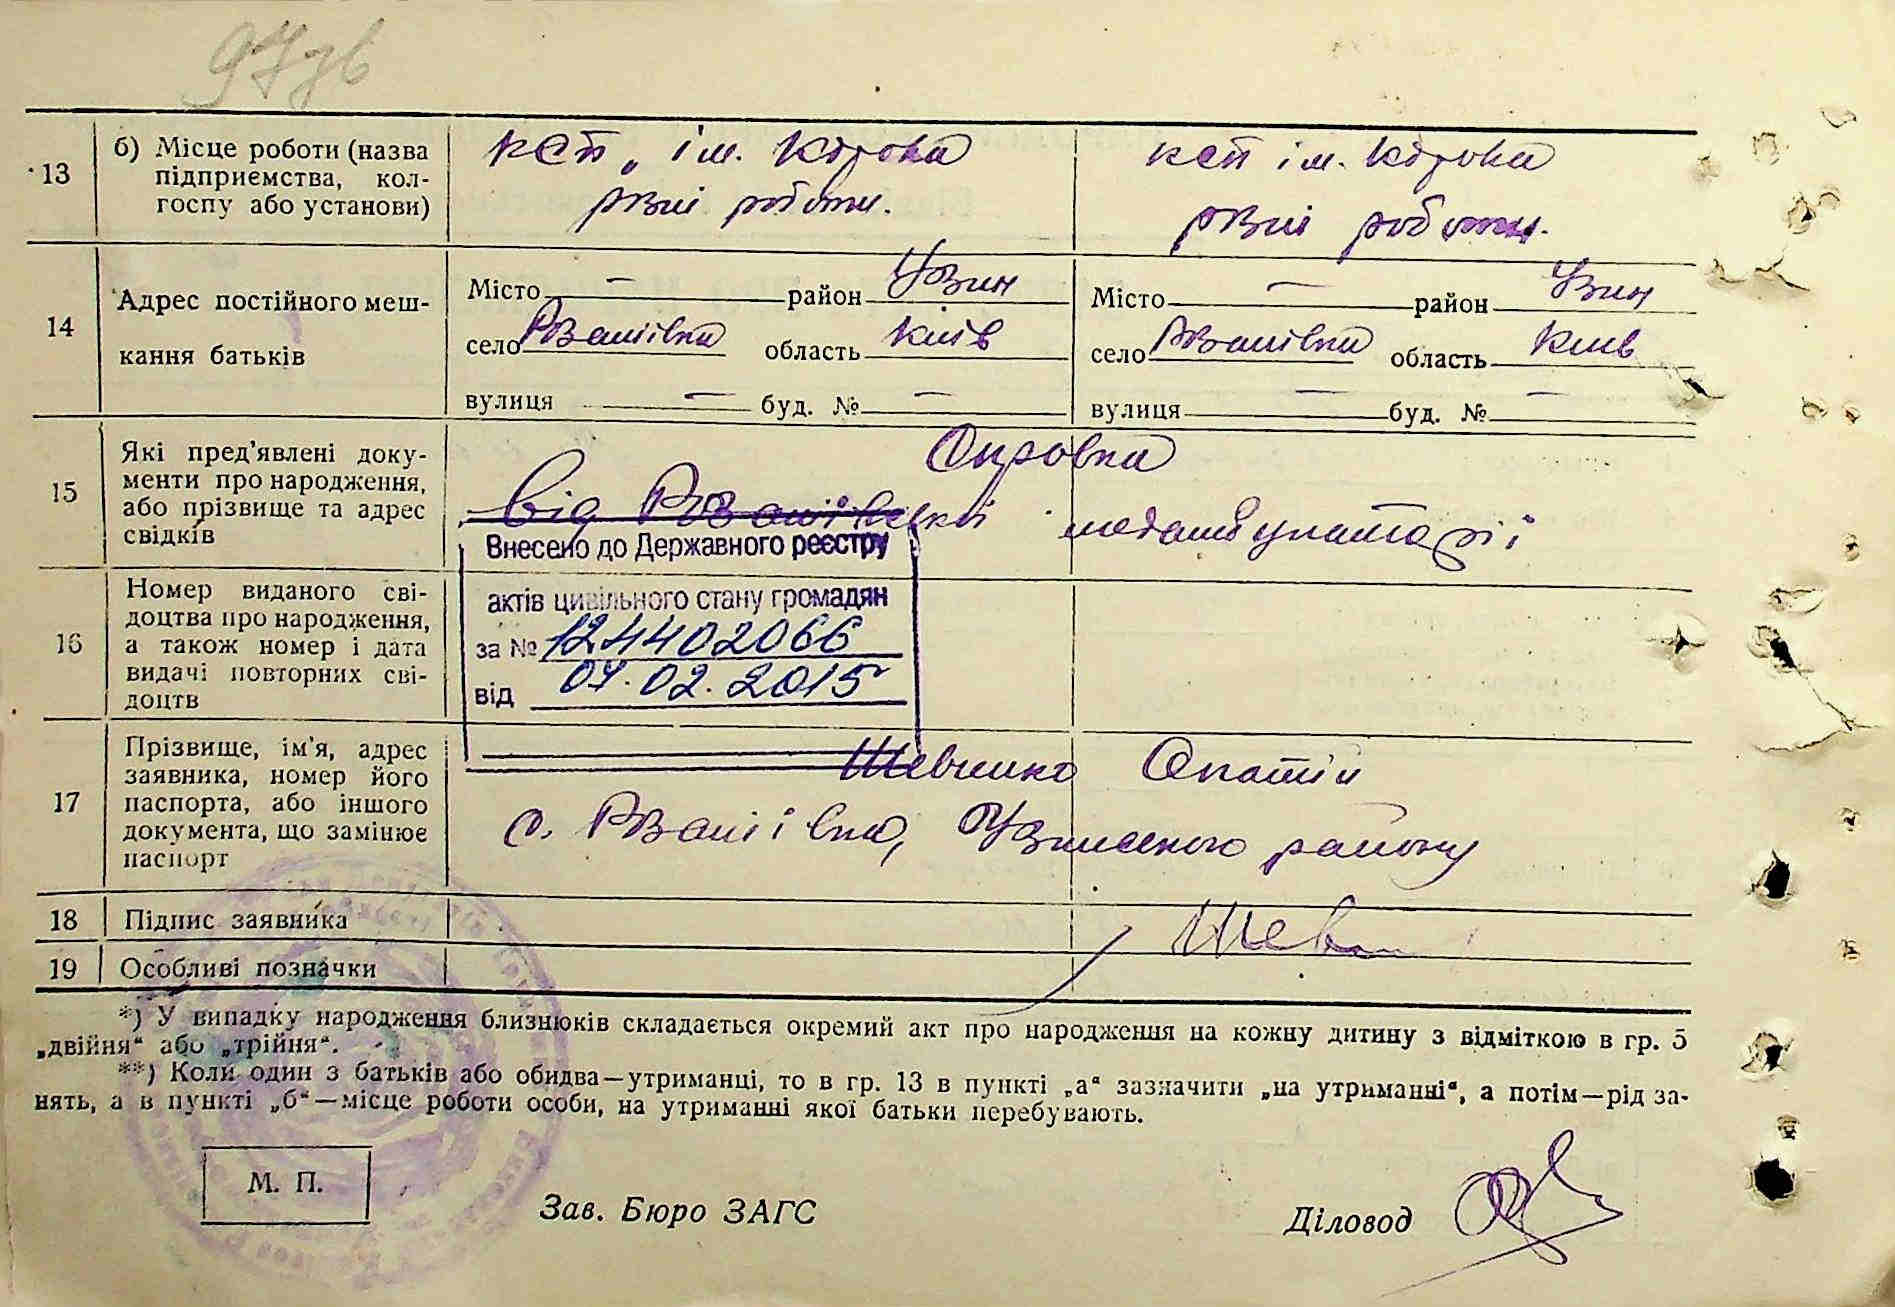 13 б) Місце роботи (назва
підприємства, кол-
госпу або установи)
ксп ім. Кірова
різні роботи.
ксп ім. Кірова
різні роботи.
14 Адрес постійного меш-
кання батьків
Місто — район Узин
село область Київ
вулиця — буд. № —
Місто — район Узин
село область Київ
вулиця — буд. № —
15 Які пред'явлені доку-
менти про народження,
або прізвище та адрес
свідків
Справка
від
16 Номер виданого сві-
доцтва про народження,
а також номер і дата
видачі повторних сві-
доцтв
Внесено до Державного реєстру
актів цивільного стану громадян
за № 124402066
від 07.02.2015
17 Прізвище, ім'я, адрес
заявника, номер його
паспорта, або іншого
документа, що замінює
паспорт
Шевченко
с. Узинського району
18 Підпис заявника
Шев
19 Особливі позначки
*) У випадку народження близнюків складається окремий акт про народження на кожну дитину з відміткою в гр. 5
„двійня“ або „трійня“.
**) Коли один з батьків або обидва—утриманці, то в гр. 13 в пункті „а“ зазначити „на утриманні“, а потім—рід за-
нять, а в пункті „б“—місце роботи особи, на утриманні якої батьки перебувають.
М. П.
Зав. Бюро ЗАГС
Діловод